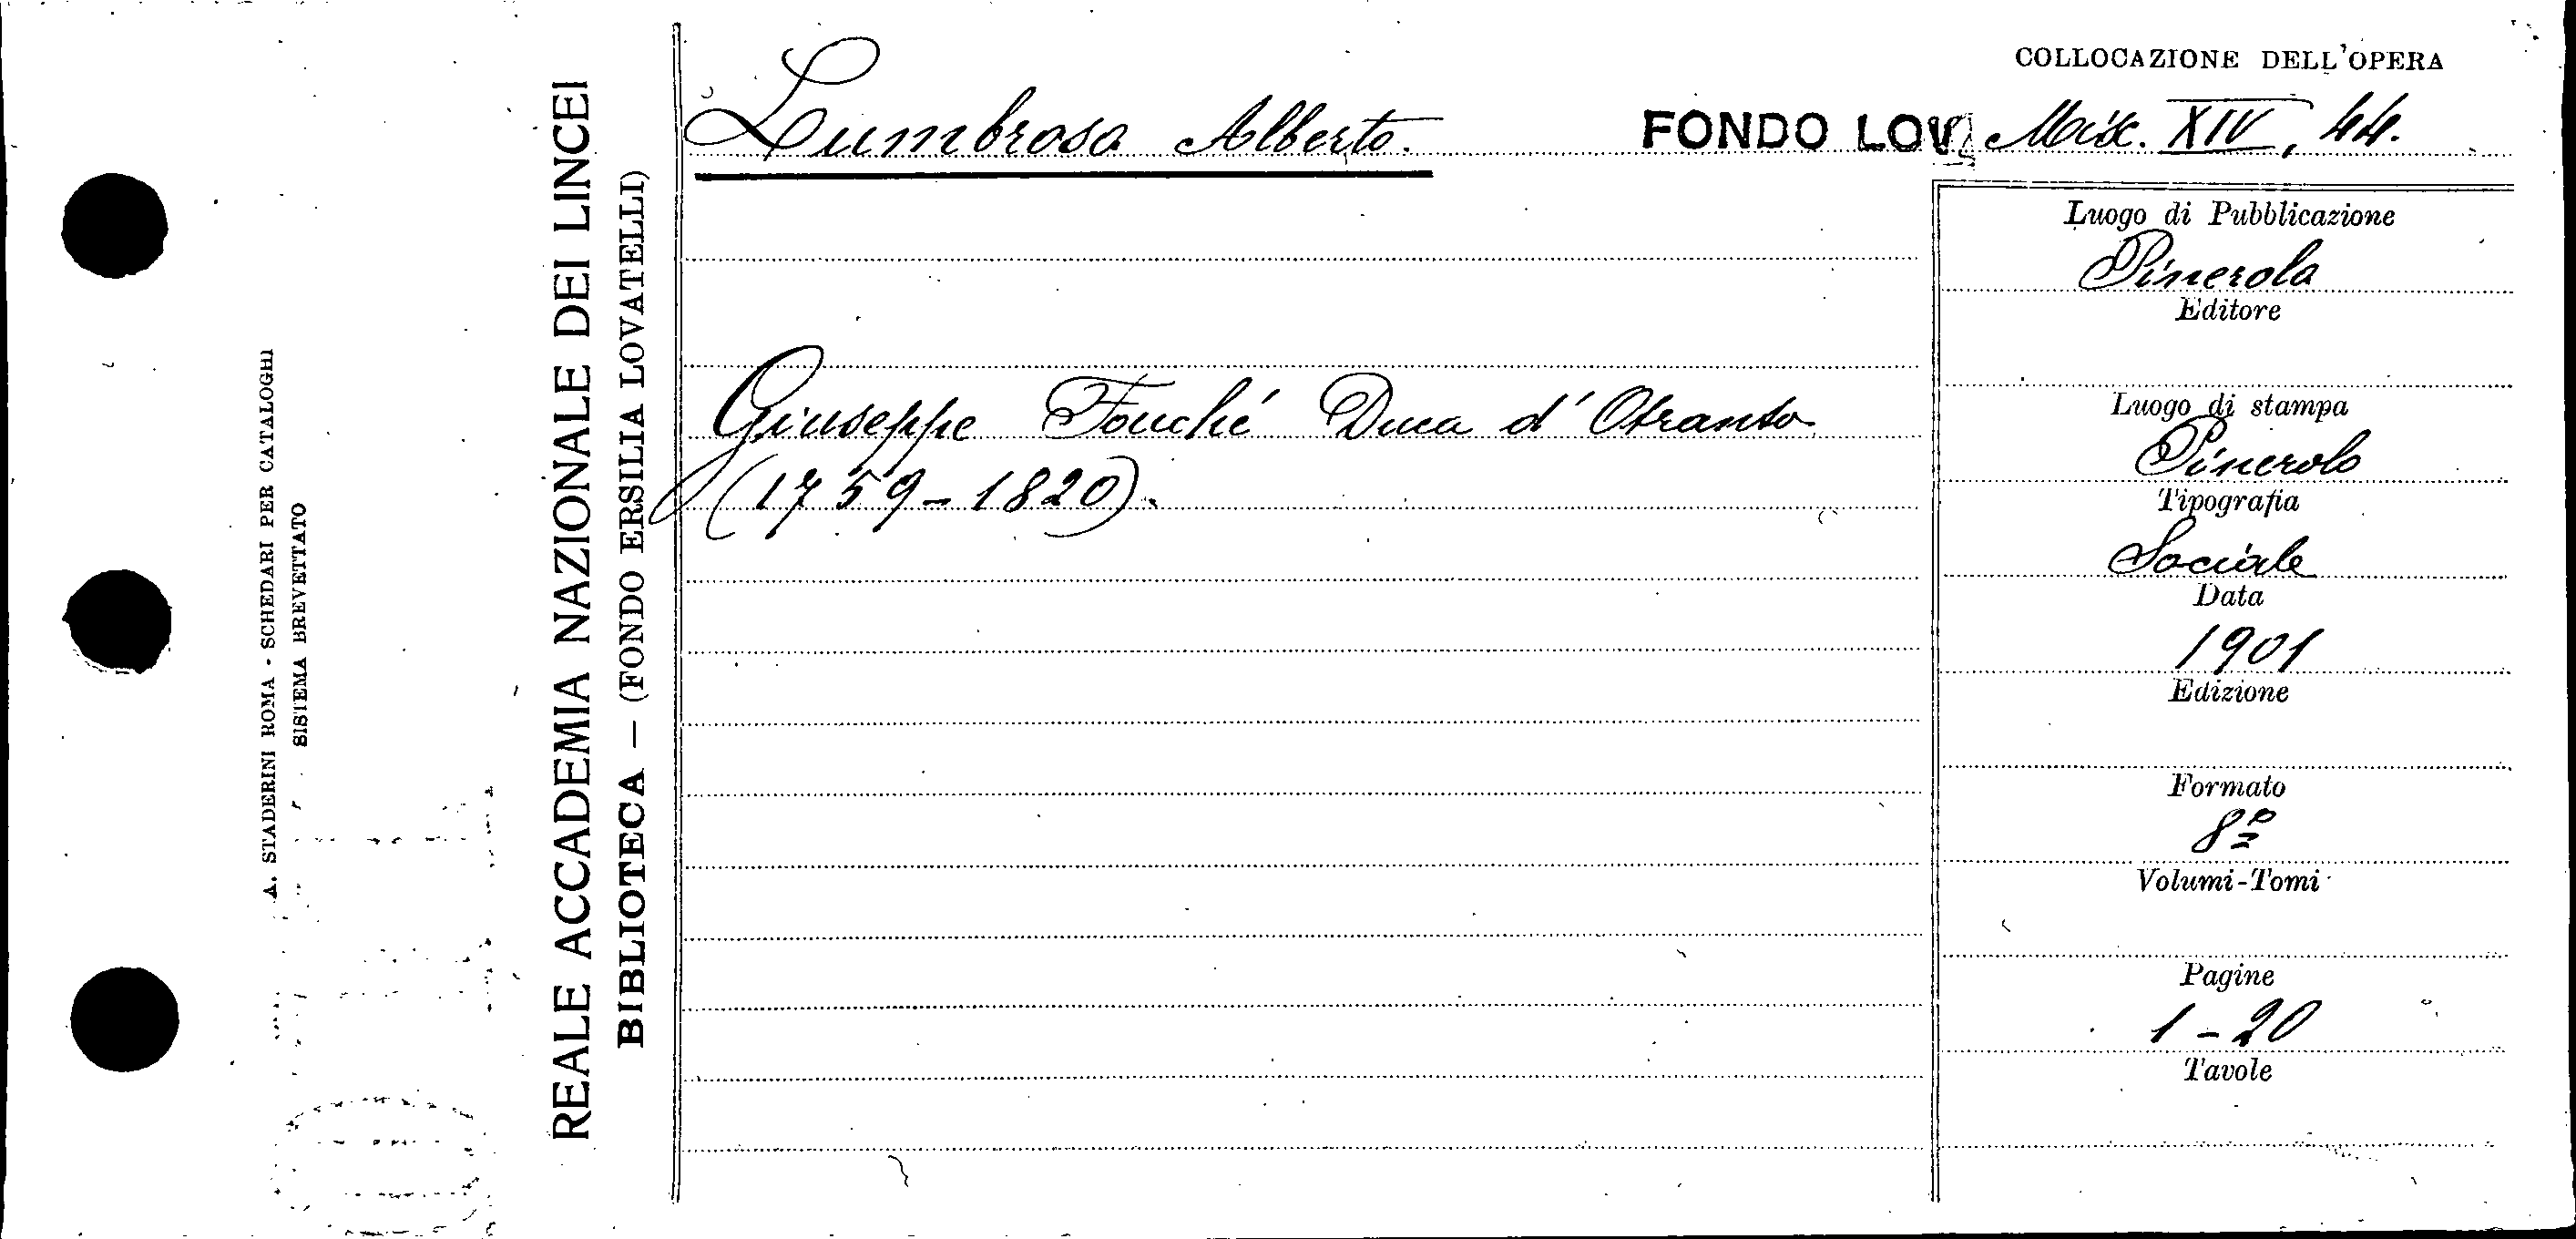 COLLOCAZIONE DELL'OPERA
Lumbroso Alberto.
FONDO LOV. Misc. XIV, 44.
Giuseppe Fouché Duca d' Otranto
(1759-1820).
Luogo di Pubblicazione
Pinerolo
Editore
Luogo di stampa
Pinerolo
Tipografia
Sociale
Data
1901
Edizione
Formato
8º
Volumi-Tomi
Pagine
1-20
Tavole
REALE ACCADEMIA NAZIONALE DEI LINCEI
BIBLIOTECA — (FONDO ERSILIA LOVATELLI)
A. STADERINI ROMA - SCHEDARI PER CATALOGHI
SISTEMA BREVETTATO